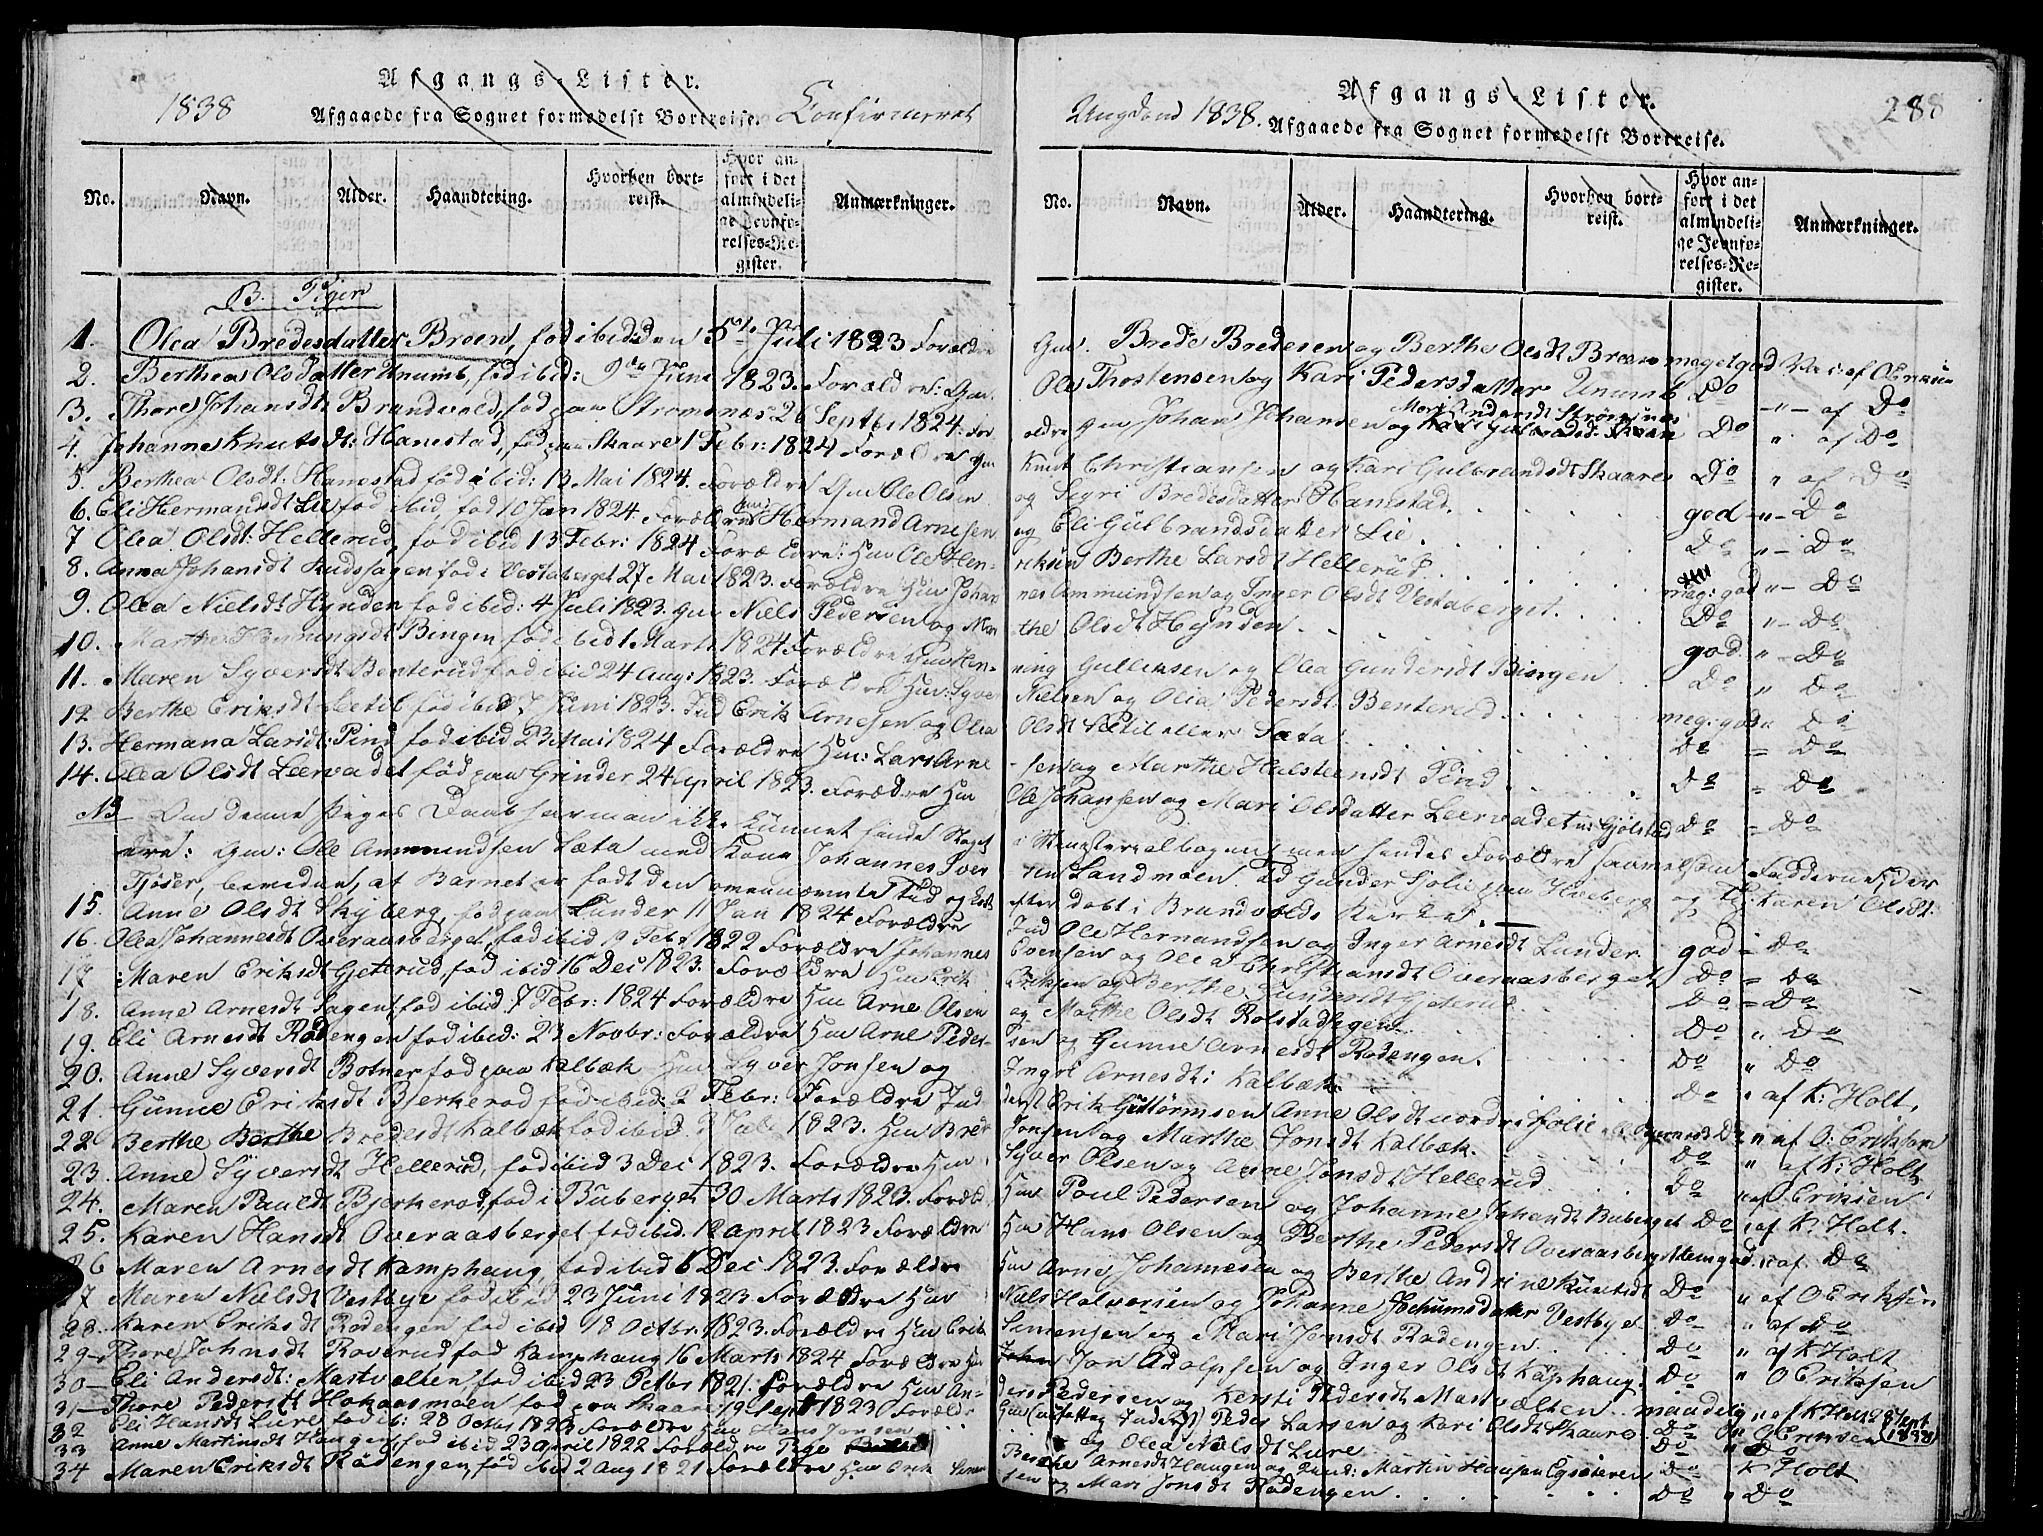 1838
Afgangs-Lister.
Afgaaede fra Sognet formedelst Bortreise.
Confirmeret
No.
Navn.
Alder.
Haandtering.
Hvorhen bort-
reist.
Hvor an-
ført i det
almindeli-
ge Jevnfø-
relses-Re-
gister.
Anmærkninger.
B. Piger
1. Olea Bredesdatter Breen, fød ibid: den 5te Juli 1823 Forældre
2. Berthea Olsdatter Unumb, fød ibid: 9de Juni 1823. Forældre: Gm.
3. Thore Johansdt: Brandvold, fød paa Strømsnæs 26 Septbr 1824. For
4. Johanne Knutsdt: Hanestad, fød paa Skaare 1 Febr: 1824 Forældre Gm
5. Berthea Olsdt: Hanestad fød ibid: 13 Mai 1824. Forældre Gm Ole Olsen
6. Eli Hermansdt Lie fød ibid, fød 10 Jan 1824. Forældre Hermand Arnesen
7 Olea Olsdt: Hellerud, fød ibid 13 Febr: 1824 Forældre: Hm Ole Hen-
8. Anna Johansdt fød i Vestaberget 27 Mai 1823. Forældre Hm Johan
9. Olea Nielsdt Hynden fød ibid: 4 Juli 1823. Gm Niels Pedersen og Mar
10. Marthe Henningsdt Bingen fød ibid 1 Marts 1824 Forældre Gm Hen-
11. Maren Syversdt Benterud fød ibid 24 Aug: 1823. Forældre Hm: Syver
12 Berthe Eriksdt Sætil fød ibid 7 Juni 1823. Ind Erik Arnesen og Olea
13. Hermana Larsdt: Pind fød ibid 23 Mai 1824 Forældre Hm: Lars Arne
14. Olea Olsdt Leervadet fød paa Grinder 24 April 1823. Forældre Hm
NB Om denne Piges Daab har man ikke kunnet finde Noget
Gm: Ole Ammundsen Sæta med Kone Johannes Iver
Tjøser, bevidne, at Barnet er født den ovennævnte Tid og
15. Anne Olsdt Skyberg, fød paa Lunder 11 Jan 1824 Forældre
16. Olea Johannesdt Overaasberget, fød ibid 19 Febr 1822 Forældre Johannes
17 Maren Eriksdt Gjeterud, fød ibid 16 Dec 1823. Forældre Hm Erik
18. Anne Arnesdt Hagen, fød ibid 7 Febr: 1824 Forældre Hm Arne Olsen
19. Eli Arnesdt Rødengen fød ibid: 23 Novbr: Forældre Hm Arne Peder-
20. Anne Syversdt Botner fød paa Kalbæk Hm Syver Jonsen og
21. Gunne Eriksdt Bjerkerød fød ibid: 2 Febr: Forældre Ind
22 Berthe Berthe Bredesdt Kalbæk fød ibid. 1823. Hm Brede
23. Anne Syversdt Hellerud, fød ibid 3 Dec 1823. Forældre Hm
24. Maren Pauldt Bjerkerød, fød i Buberget 30 Marts 1823. Foræld
25. Karen Hansdt Overaasberget fød ibid. 12 April 1823 Forældre
26 Maren Arnesdt Kamphaug, fød ibid 6 Dec 1823. Forældre
27 Maren Nielsdt Vestbye fød ibid 23 Juni 1823 Forældre Hm
28. Karen Eriksdt Rødengen fød ibid 18 Octbr. 1823. Forældre Hm Erik
29 Thore Johnsdt Roverud fød Kamphaug 16 Marts 1824 Forældre Hm
30 Eli Andersdt: Mastvælten fød ibid 23 Octbr 1821. Forældre Hm An-
31 Thore Pedersdt Hokaasmoen fød paa Skaare 19 Sept 1823 Forældr
32 Eli Hansdt Lure fød ib: 28 Octbr 1823 Forældre Hm Hans Jonsen
33 Anne Martinsdt Haugen fød ibid 23 April 1822 Forældre Pige
34 Maren Eriksdt Rødengen, fød ibid 2 Aug 1821 Forældre Hm Erik Simen
Ungdom 1838.
Afgangs-Lister.
Afgaaede fra Sognet formedelst Bortreise.
288
No.
Navn.
Alder.
Haandtering.
Hvorhen bort-
reist.
Hvor an-
ført i det
almindeli-
ge Jevnfø-
relses-Re-
gister.
Anmærkninger.
Gm. Brede Bredesen og Berthe Olsdt Breen meget god Vac: af O Eriksen
Ole Thostensen og Kari Pedersdatter Unumb Do -"- af Do
Mari Andersdt Strømsnæs
ældre Gm Johan Johansen og Kari Gulbrandsd: Skaare Do " af Do
Knut Christiansen og Kari Gulbrandsdt Skaare Do " af Do
og Sigri Bredesdatter Hanestad. god -"- Do
og Eli Gulbrandsdatter Lie. Do "- Do
riksen Berthe Larsdt Hellerud. meg: god "- Do
nes Ammundsen og Inger Olsdt Vestaberget. Do "- Do
the Olsdt Hynden god " Do
ning Gullensen og Olea Gundersdt Bingen Do " Do
Nielsen og Olia Pedersdt: Benterud meg: god " Do
Olsdt Sætil eller Sæta Do = Do
sen og Marthe Halsteensdt Pind Do = Do
Ole Johansen og Mari Olsdatter Leervadet n: Gjølstad Do = Do
i Ministerialbogen men hendes Forældre saavelsom Fadderne, der
Sandmoen Td Gunder Sjølie paa Hveberg og P: Karen Olsdt.
efter døbt i Brandvolds Kirke.
Ind Ole Hermandsen og Inger Arnesdt Lunder god = Do
Evensen og Olea Christiansdt Overaasberget Do = Do
Eriksen og Berthe Gundersdt Gjeterud Do = Do
og Marthe Olsdt Rolstadhagen Do " Do
sen og Gunne Arnesdt Rødengen. Do " Do
Ingri Arnesdt: Kalbæk Do " af K: Holt.
derst Erik Guttormsen Anne Olsdt nordre Sjølie Do " af O: Eriksen
Jonsen og Marthe Jonsdt Kalbæk. Do " af K: Holt
Syver Olsen og Anne Jonsdt Hellerud Do " af O Eriksen
Hm Poul Pedersen og Johanne Johandt Buberget Do " af K. Holt.
Hm Hans Olsen og Berthe Pedersdt Overaasberg Mem god. " af. Do
Hm Arne Johannesen og Berthe Andrine Knutsdt Do " af O Eriksen
Niels Halvorsen og Johanne Jochumsdatter Vestbye Do " af Do
Simensen og Mari Jonsdt Rødengen Do " af K Holt
John Jon Adolpsen og Inger Olsdt Kaphaug Do " O Eriksen
ders Pedersen og Kersti Pedersdt Mastvælten. maadelig " af K Holt 28 Sept 1838
Peder Larsen og Kari Olsdt Skaare Do " O Eriksen
og Olea Nielsdt Lure Do " Do
Berthe Arnesdt Haugen og Martin Hansen Egsæteren Do K Holt
sen og Mari Jonsdt Rødengen Do " Do